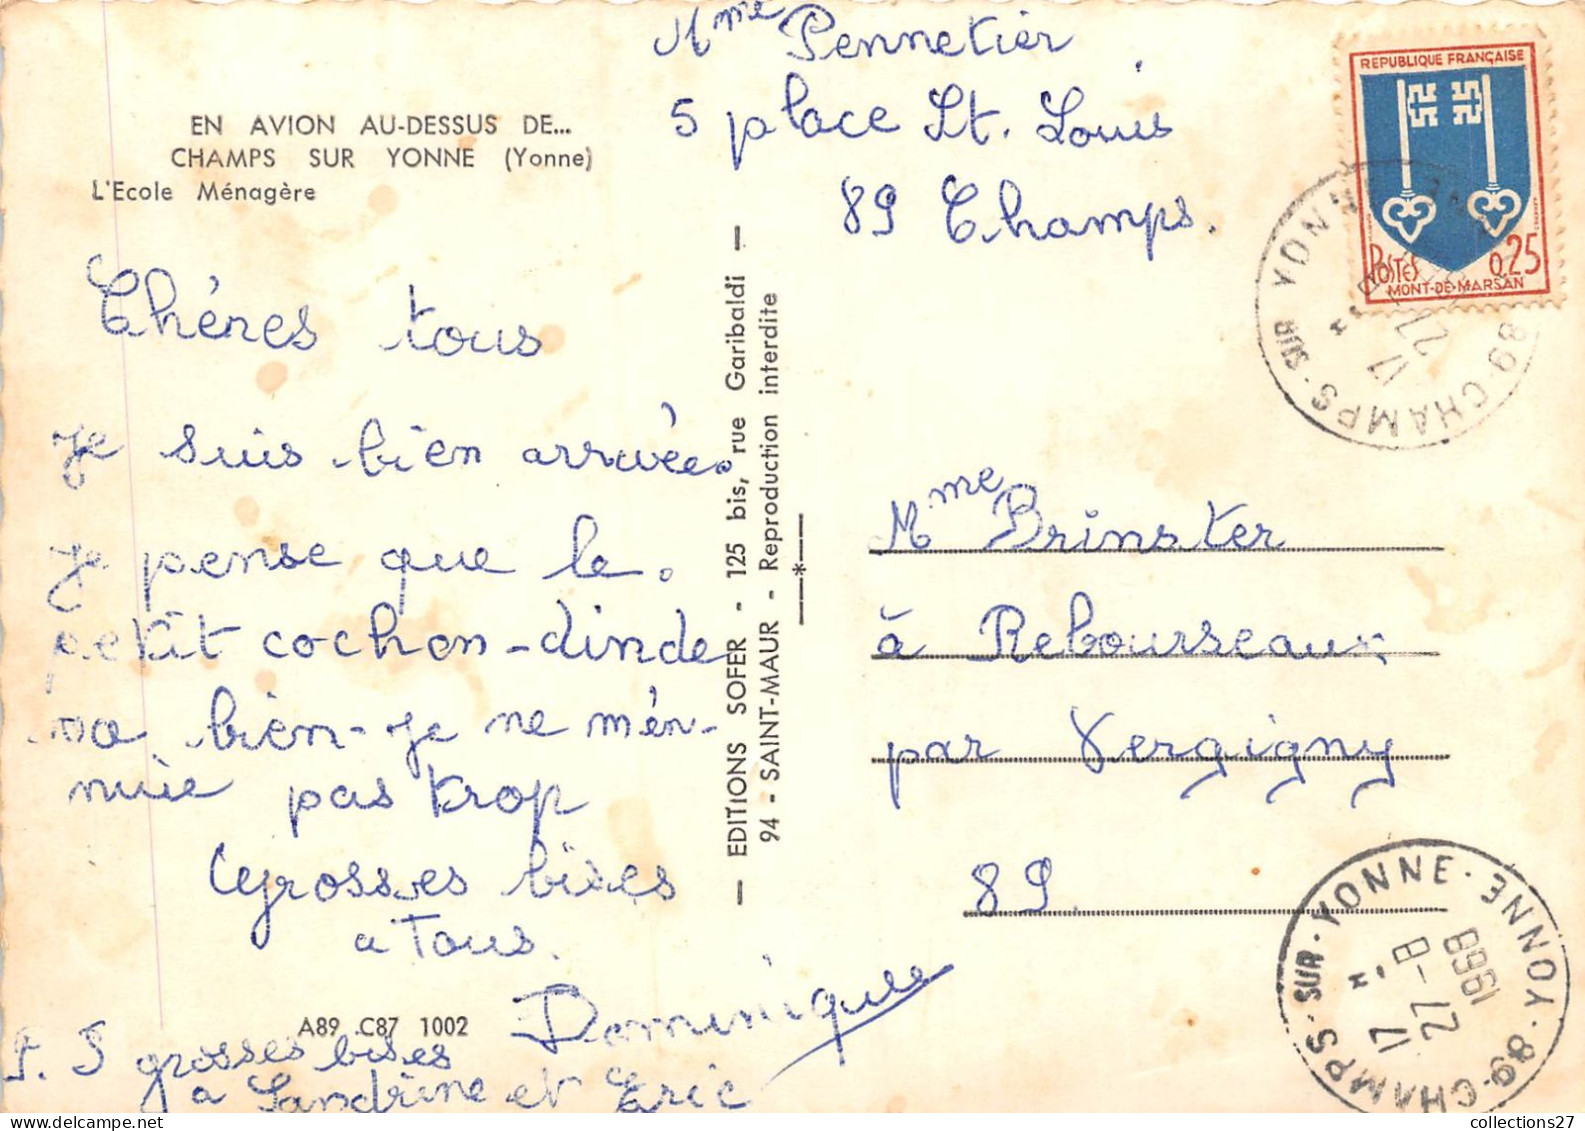 EN AVION AU-DESSUS DE...
CHAMPS SUR YONNE (Yonne)
L'Ecole Ménagère
Chéres tous
je suis bien arrivée.
je pense que le.
petit cochon-dinde
va bien-je ne mén-
nuie pas trop
Grosses bises
a Tous.
Dominique
A89 C87 1002
P. S grosses bises
a Sandrine et Eric
EDITIONS SOFER - 125 bis, rue Garibaldi
94 - SAINT-MAUR - Reproduction interdite
Mme Pennetier
5 place St. Louis
89 Champs.
REPUBLIQUE FRANÇAISE
POSTES 0,25
MONT-DE-MARSAN
89-CHAMPS-SUR YONNE
17 H
27
Mme Brinster
à Rebourseaux
par Vergigny
89
89-CHAMPS-SUR-YONNE · YONNE
17 H
27-8
1968
collections27